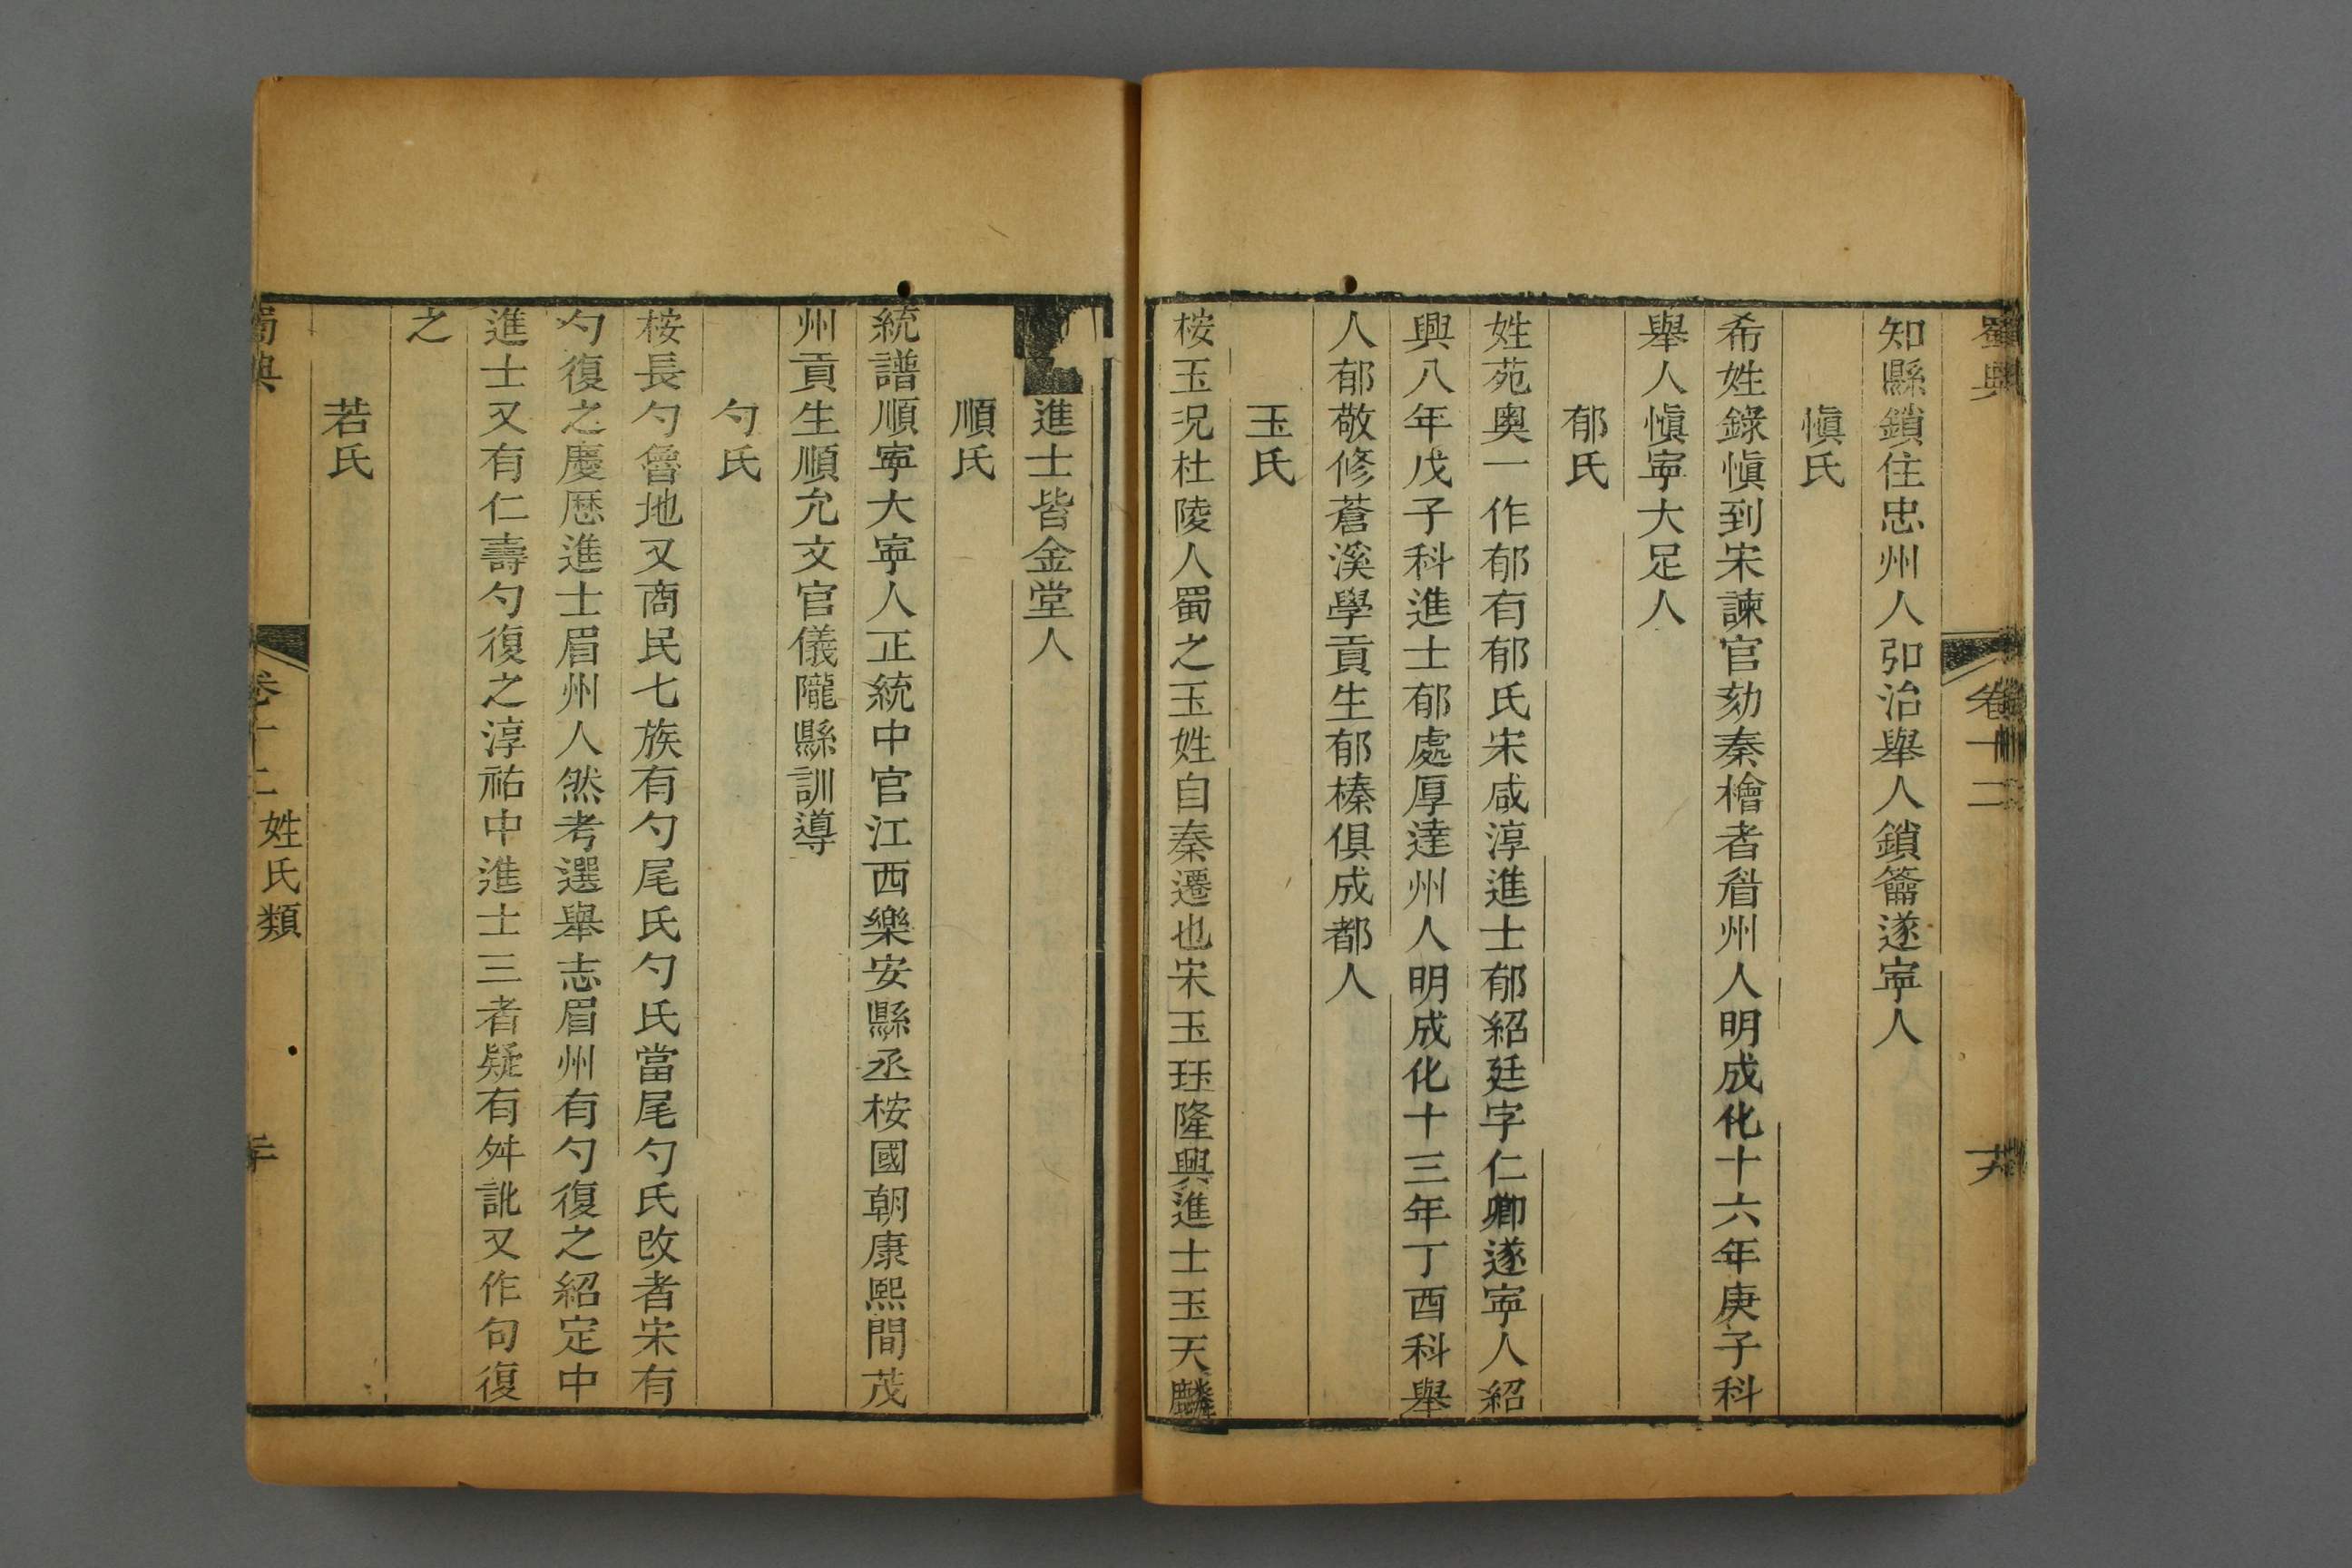 蜀典 卷十二
知縣鎖住忠州人卭治舉人鎖籥遂寧人
愼氏
希姓錄愼到宋諫官劾秦檜者眉州人明成化十六年庚子科
舉人愼寧大足人
郁氏
姓苑奧一作郁有郁氏宋咸淳進士郁紹廷字仁卿遂寧人紹
興八年戊子科進士郁處厚達州人明成化十三年丁酉科舉
人郁敬修蒼溪學貢生郁榛俱成都人
玉氏
桉玉況杜陵人蜀之玉姓自秦遷也宋玉珏隆興進士玉天麟
進士皆金堂人
順氏
統譜順寧大寧人正統中官江西樂安縣丞桉國朝康熙間茂
州貢生順允文官儀隴縣訓導
勺氏
桉長勺魯地又商民七族有勺尾氏勺氏當尾勺氏改者宋有
勺復之慶厯進士眉州人然考選舉志眉州有勺復之紹定中
進士又有仁壽勺復之淳祐中進士三者疑有舛訛又作句復
之
若氏
蜀典 卷十二 姓氏類